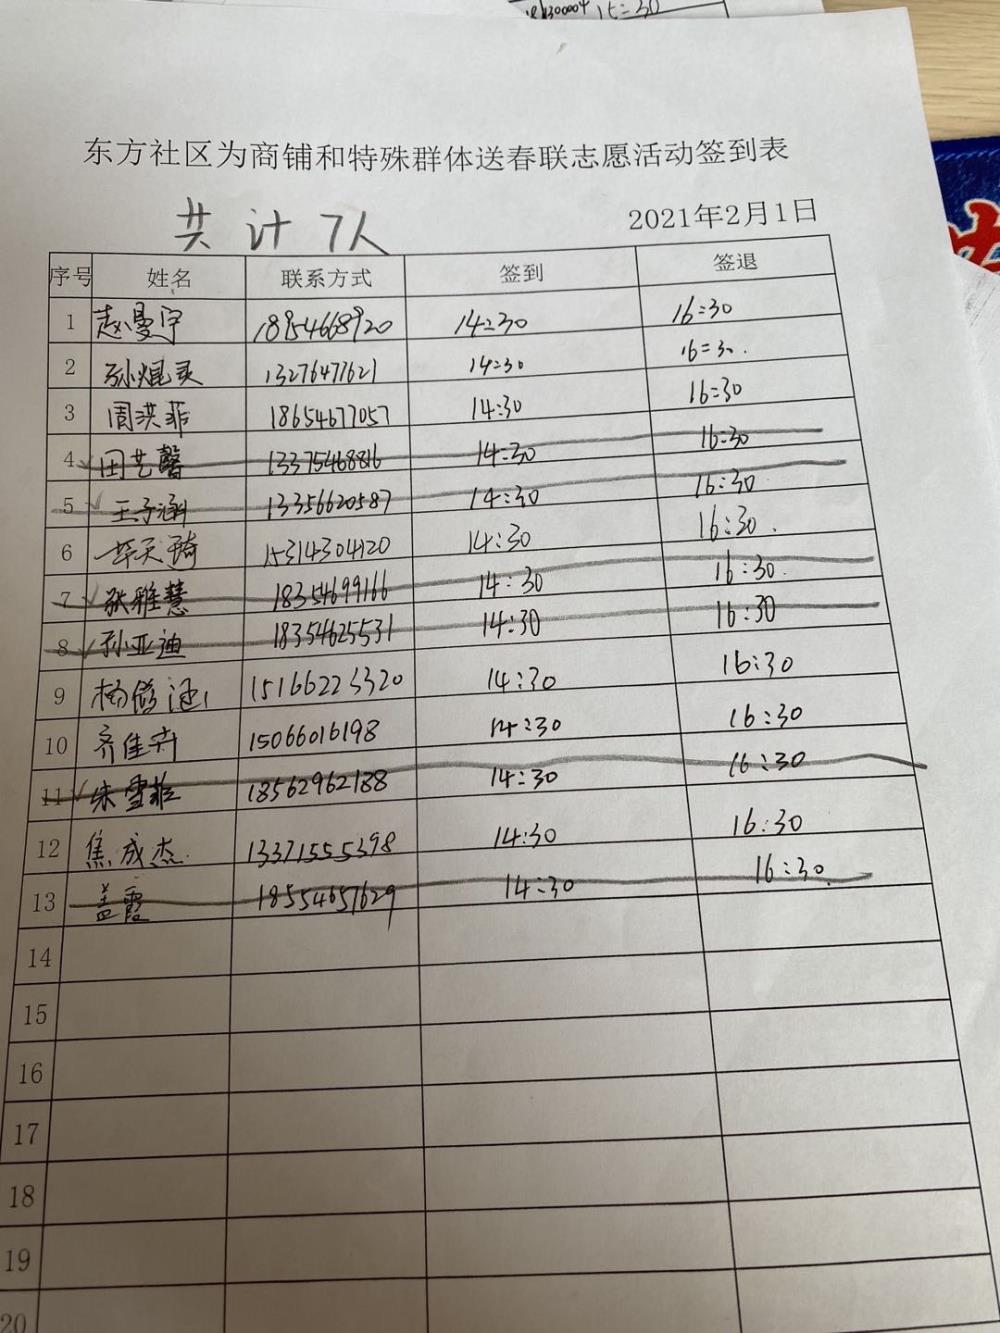 15:30
东方社区为商铺和特殊群体送春联志愿活动签到表
共计7人
2021年2月1日
序号 姓名 联系方式 签到 签退
1 赵曼宇 18954668920 14:30 16:30
2 孙焜灵 13276477621 14:30 16:30.
3 周洪菲 18654677057 14:30 16:30
4 田艺馨 13375468816 14:30 16:30
5 王子涵 13356620587 14:30 16:30
6 天琦 15314304120 14:30 16:30.
7 张雅慧 18354699166 14:30 16:30.
8 孙亚迪 18354625531 14:30 16:30
9 杨 涵 15166223320 14:30 16:30
10 齐佳卉 15066016198 14:30 16:30
11 朱雪菲 18562962188 14:30 16:30
12 焦成杰 13371555398 14:30 16:30
13 盖霞 18554657629 14:30 16:30.
14
15
16
17
18
19
20